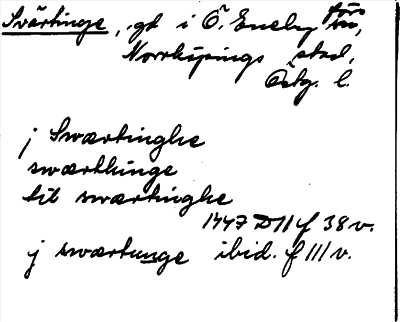 Svärtinge, gd i Ö. Eneby förs,
Norrköpings stad,
Östg. l.
j Swærtinghe
swærthinge
til swærtinghe
1447 D 11 f 38 v.
j swærtunge ibid. f 111 v.